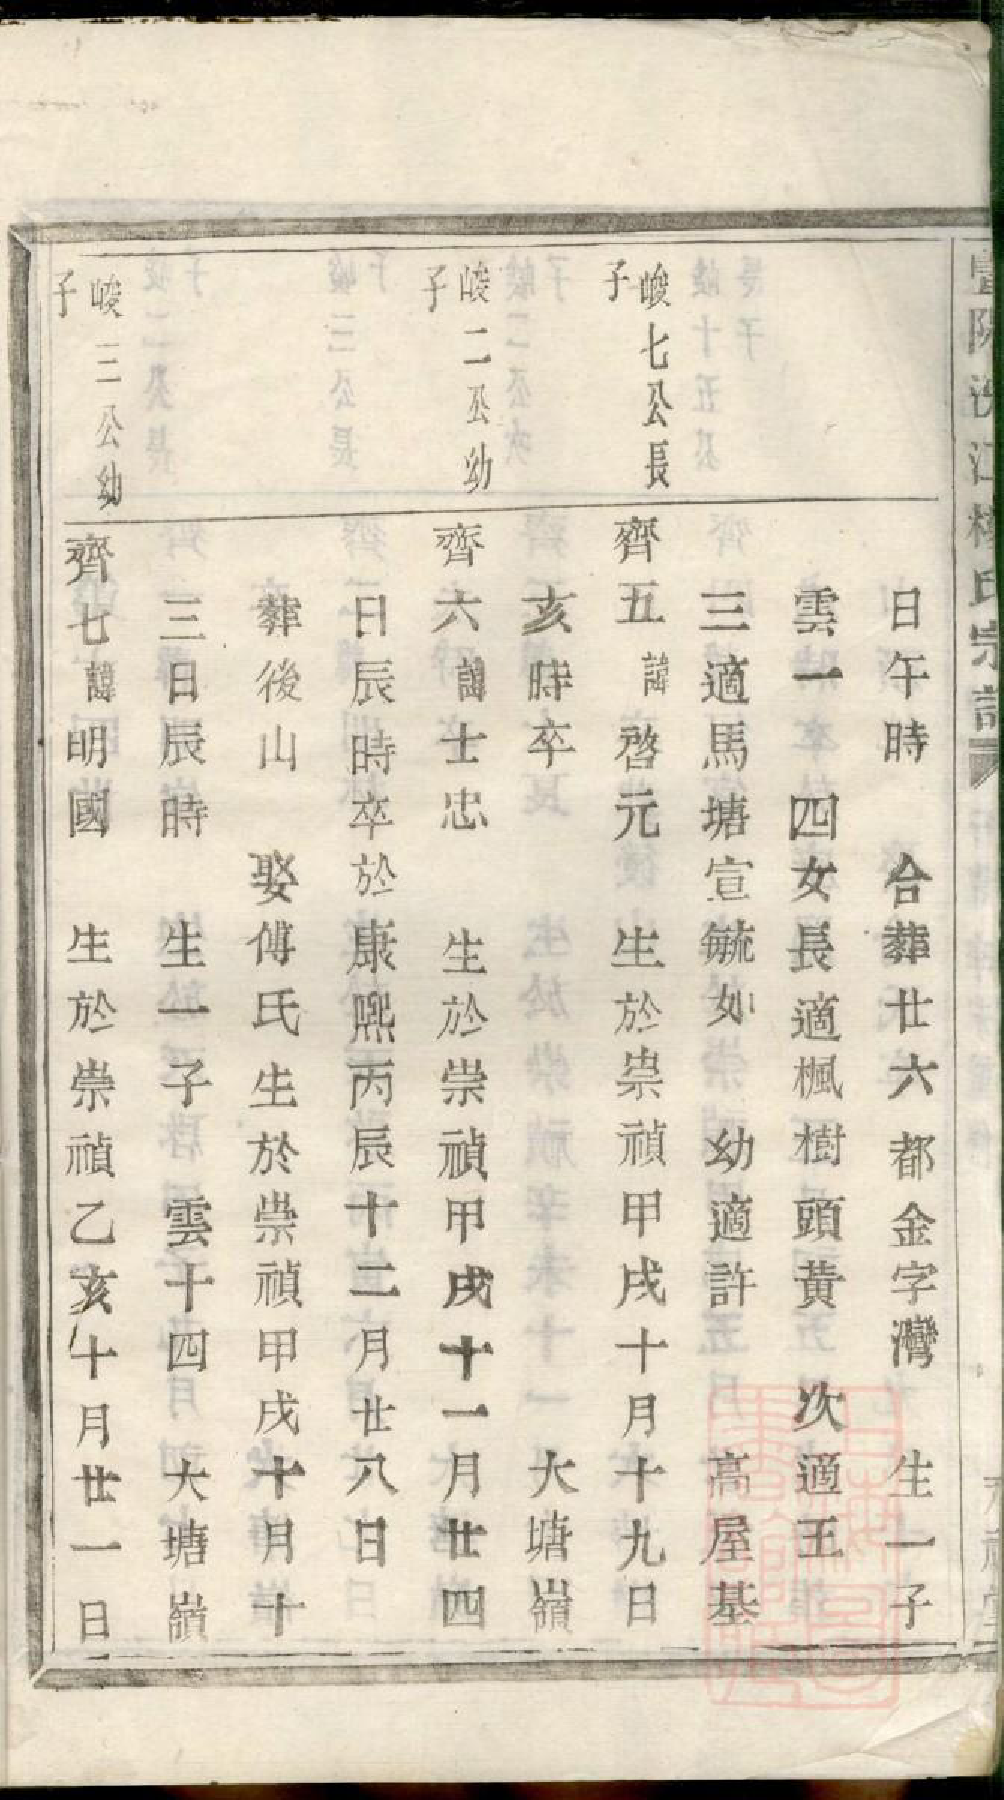 日午時　合葬廿六都金字灣　生一子
雲一　四女長適楓樹頭黃　次適王
三適馬塘宣毓如　幼適許　高屋基
峻七公長
子
齊五諱啓元　生於崇禎甲戌十月十九日
亥時卒　大塘嶺
峻二公幼
子
齊六諱士忠　生於崇禎甲戌十一月廿四
日辰時卒於康熙丙辰十二月廿八日
葬後山　娶傅氏生於崇禎甲戌十月十
三日辰時　生一子　雲十四　大塘嶺
峻三公幼
子
齊七諱明國　生於崇禎乙亥十月廿一日